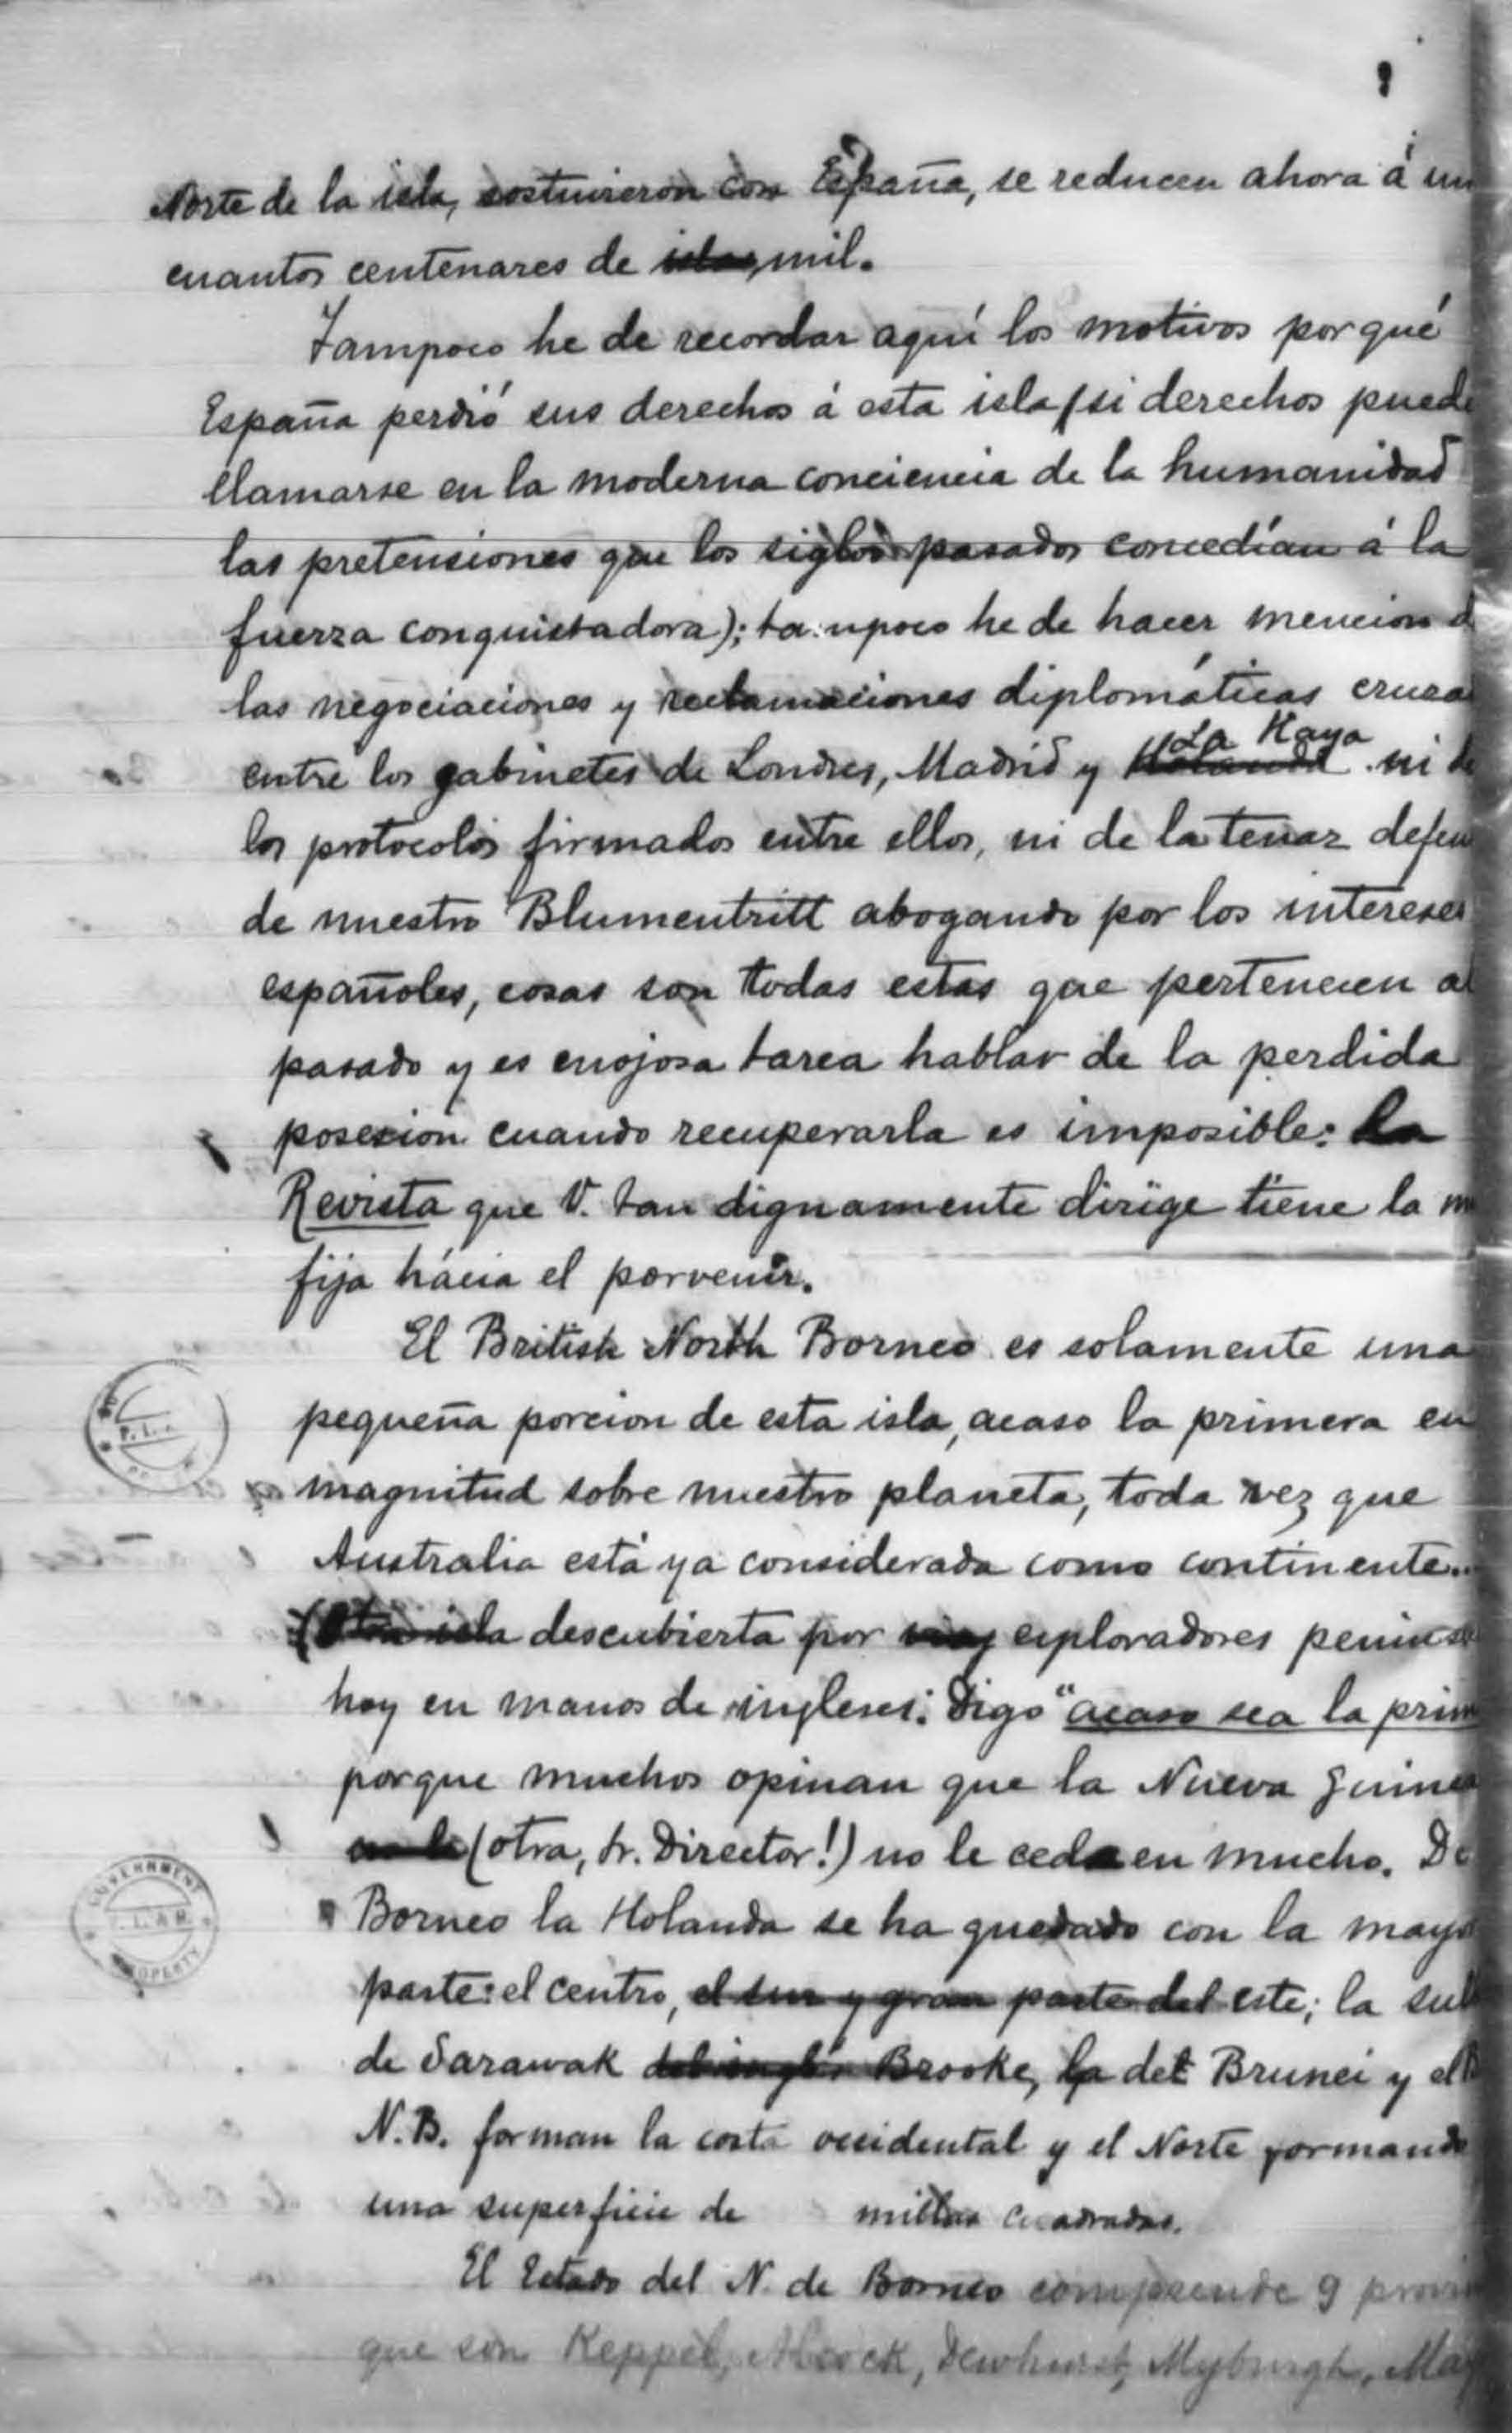 Norte de la isla, sostuvieron con España, se reducen ahora á un
cuantos centenares de islas, mil.
Tampoco he de recordar aquí los motivos porqué
España perdió sus derechos á esta isla (si derechos puede
llamarse en la moderna conciencia de la humanidad
las pretensiones que los siglos pasados concedían á la
fuerza conquistadora); tampoco he de hacer mencion d
las negociaciones y reclamaciones diplomáticas cruza
La Haya
entre los gabinetes de Londres, Madrid y Holanda ni de
los protocolos firmados entre ellos, ni de la tenaz defen
de nuestro Blumentritt abogando por los intereses
españoles, cosas son todas estas que pertenecen al
pasado y es enojosa tarea hablar de la perdida
posesion cuando recuperarla es imposible: La
Revista que V. tan dignamente dirige tiene la m
fija hácia el porvenir.
El British North Borneo es solamente una
pequeña porcion de esta isla, acaso la primera en
magnitud sobre nuestro planeta, toda vez que
Australia está ya considerada como continente.
(Otra isla descubierta por exploradores penins
hoy en manos de ingleses. Digo "acaso sea la prim
porque muchos opinan que la Nueva Guinea
no le (otra, Sr. Director!) no le ceda en mucho. De
Borneo la Holanda se ha quedado con la mayo
parte: el centro, el sur y gran parte del este; la sul
de Sarawak del inglés Brooke, la del Brunei y el B
N.B. forman la costa occidental y el Norte formando
una superficie de millas cuadradas.
El Estado del N. de Borneo comprende 9 provin
que son Keppel, Alcock, Dewhurst, Myburgh, Ma
GOVERNMENT
P.L.&M.
PROPERTY